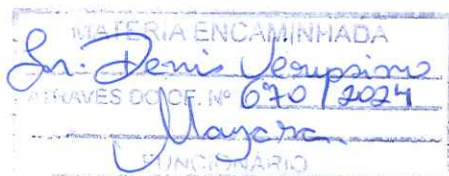 MATÉRIA ENCAMINHADA
Sr. Denis
ATRAVÉS DO OF. Nº 670 / 2024
Mayara
FUNCIONÁRIO